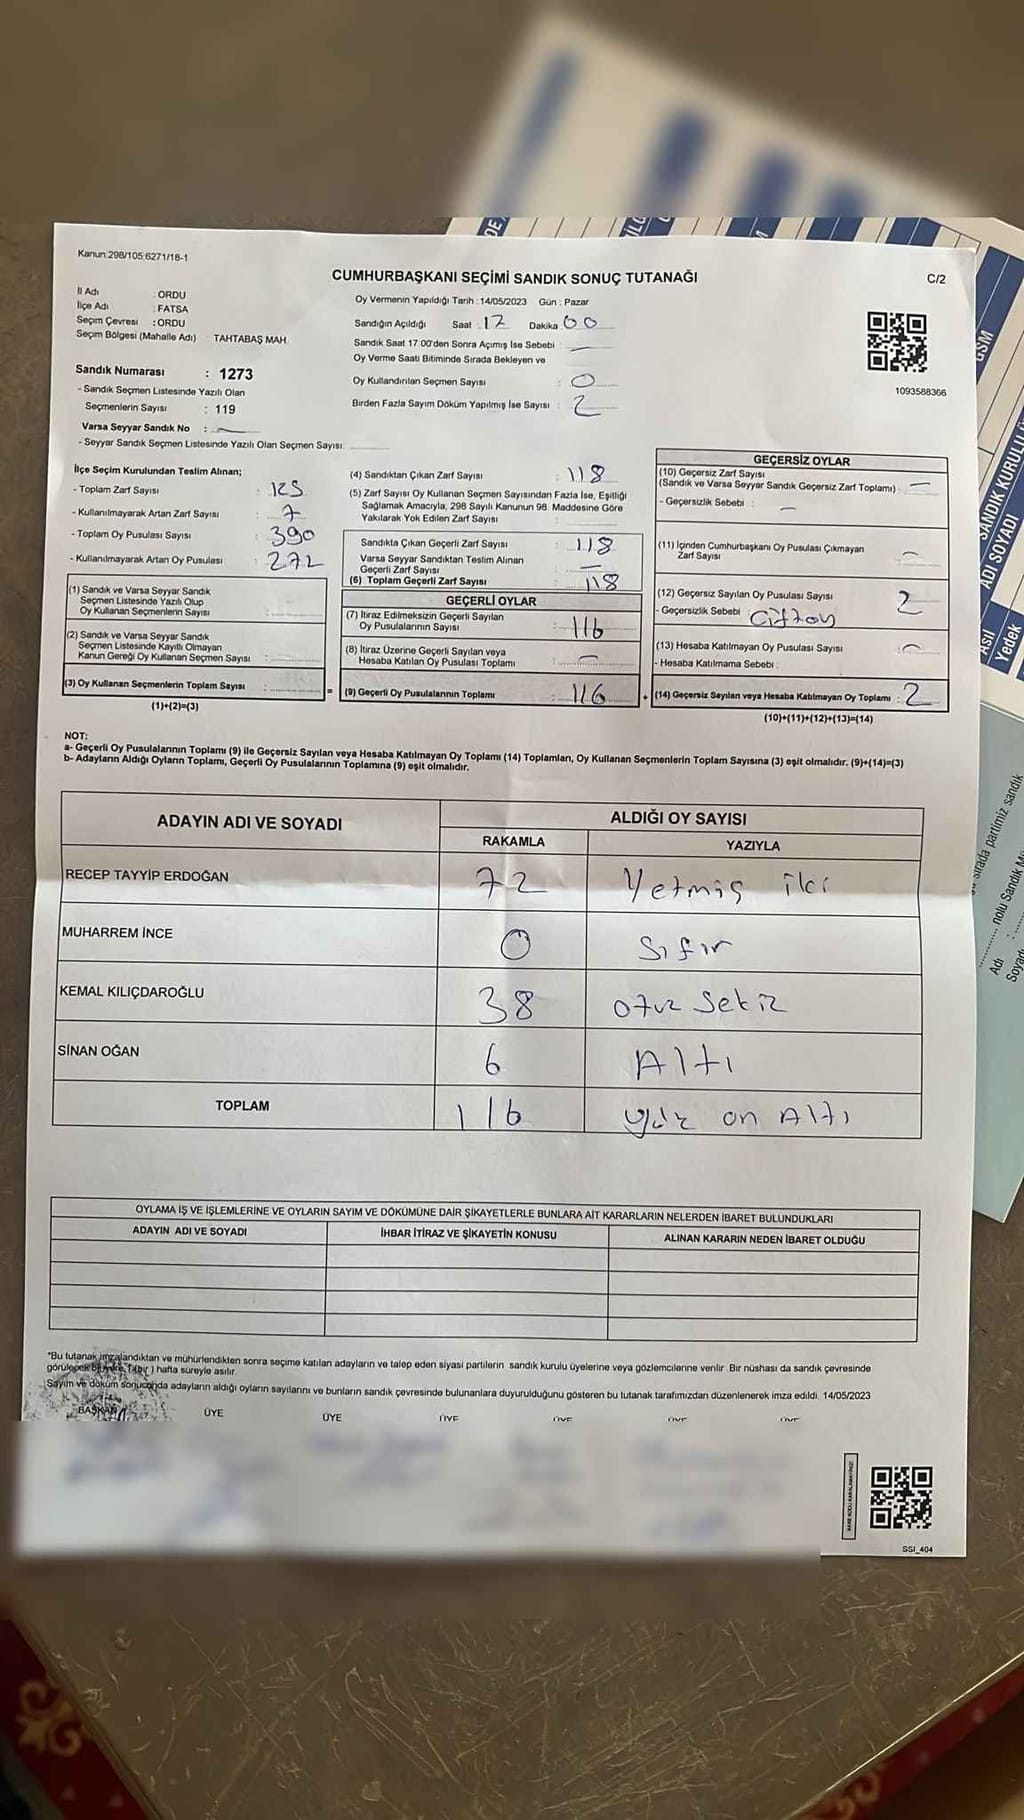 Kanun:298/105;6271/18-1
CUMHURBAŞKANI SEÇİMİ SANDIK SONUÇ TUTANAĞI
C/2
İl Adı : ORDU
İlçe Adı : FATSA
Seçim Çevresi : ORDU
Seçim Bölgesi (Mahalle Adı) : TAHTABAŞ MAH.
Oy Vermenin Yapıldığı Tarih : 14/05/2023 Gün : Pazar
Sandığın Açıldığı Saat : 17 Dakika : 00
Sandık Saat 17:00'den Sonra Açımış İse Sebebi : —
Oy Verme Saati Bitiminde Sırada Bekleyen ve
Oy Kullandırılan Seçmen Sayısı : 0
Birden Fazla Sayım Döküm Yapılmış İse Sayısı : 2
1093588366
Sandık Numarası : 1273
- Sandık Seçmen Listesinde Yazılı Olan
Seçmenlerin Sayısı : 119
Varsa Seyyar Sandık No : —
- Seyyar Sandık Seçmen Listesinde Yazılı Olan Seçmen Sayısı:
İlçe Seçim Kurulundan Teslim Alınan;
- Toplam Zarf Sayısı : 125
- Kullanılmayarak Artan Zarf Sayısı : 7
- Toplam Oy Pusulası Sayısı : 390
- Kullanılmayarak Artan Oy Pusulası : 272
(1) Sandık ve Varsa Seyyar Sandık
Seçmen Listesinde Yazılı Olup
Oy Kullanan Seçmenlerin Sayısı :
(2) Sandık ve Varsa Seyyar Sandık
Seçmen Listesinde Kayıtlı Olmayan
Kanun Gereği Oy Kullanan Seçmen Sayısı :
(3) Oy Kullanan Seçmenlerin Toplam Sayısı : =
(1)+(2)=(3)
(4) Sandıktan Çıkan Zarf Sayısı : 118
(5) Zarf Sayısı Oy Kullanan Seçmen Sayısından Fazla İse, Eşitliği
Sağlamak Amacıyla, 298 Sayılı Kanunun 98. Maddesine Göre
Yakılarak Yok Edilen Zarf Sayısı :
Sandıkta Çıkan Geçerli Zarf Sayısı : 118
Varsa Seyyar Sandıktan Teslim Alınan
Geçerli Zarf Sayısı : —
(6) Toplam Geçerli Zarf Sayısı : 118
GEÇERLİ OYLAR
(7) İtiraz Edilmeksizin Geçerli Sayılan
Oy Pusulalarının Sayısı : 116
(8) İtiraz Üzerine Geçerli Sayılan veya
Hesaba Katılan Oy Pusulası Toplamı : —
(9) Geçerli Oy Pusulalarının Toplamı : 116 +
GEÇERSİZ OYLAR
(10) Geçersiz Zarf Sayısı
(Sandık ve Varsa Seyyar Sandık Geçersiz Zarf Toplamı) : —
- Geçersizlik Sebebi : —
(11) İçinden Cumhurbaşkanı Oy Pusulası Çıkmayan
Zarf Sayısı : —
(12) Geçersiz Sayılan Oy Pusulası Sayısı : 2
- Geçersizlik Sebebi :
(13) Hesaba Katılmayan Oy Pusulası Sayısı : —
- Hesaba Katılmama Sebebi :
(14) Geçersiz Sayılan veya Hesaba Katılmayan Oy Toplamı : 2
(10)+(11)+(12)+(13)=(14)
NOT:
a- Geçerli Oy Pusulalarının Toplamı (9) ile Geçersiz Sayılan veya Hesaba Katılmayan Oy Toplamı (14) Toplamları, Oy Kullanan Seçmenlerin Toplam Sayısına (3) eşit olmalıdır. (9)+(14)=(3)
b- Adayların Aldığı Oyların Toplamı, Geçerli Oy Pusulalarının Toplamına (9) eşit olmalıdır.
ADAYIN ADI VE SOYADI
ALDIĞI OY SAYISI
RAKAMLA YAZIYLA
RECEP TAYYİP ERDOĞAN 72 Yetmiş iki
MUHARREM İNCE 0 Sıfır
KEMAL KILIÇDAROĞLU 38 otuz sekiz
SİNAN OĞAN 6 Altı
TOPLAM 116 yüz on Altı
OYLAMA İŞ VE İŞLEMLERİNE VE OYLARIN SAYIM VE DÖKÜMÜNE DAİR ŞİKAYETLERLE BUNLARA AİT KARARLARIN NELERDEN İBARET BULUNDUKLARI
ADAYIN ADI VE SOYADI İHBAR İTİRAZ VE ŞİKAYETİN KONUSU ALINAN KARARIN NEDEN İBARET OLDUĞU
*Bu tutanak imzalandıktan ve mühürlendikten sonra seçime katılan adayların ve talep eden siyasi partilerin sandık kurulu üyelerine veya gözlemcilerine verilir. Bir nüshası da sandık çevresinde
hafta süreyle asılır.
Sayım ve döküm sonucunda adayların aldığı oyların sayılarını ve bunların sandık çevresinde bulunanlara duyurulduğunu gösteren bu tutanak tarafımızdan düzenlenerek imza edildi. 14/05/2023
BAŞKAN ÜYE ÜYE ÜYE ÜYE ÜYE ÜYE
SSI_404
GSM
SANDIK KURULU
ADI SOYADI
Asıl
Yedek
sırada partimiz sandık
nolu Sandık
Adı :
Soyadı